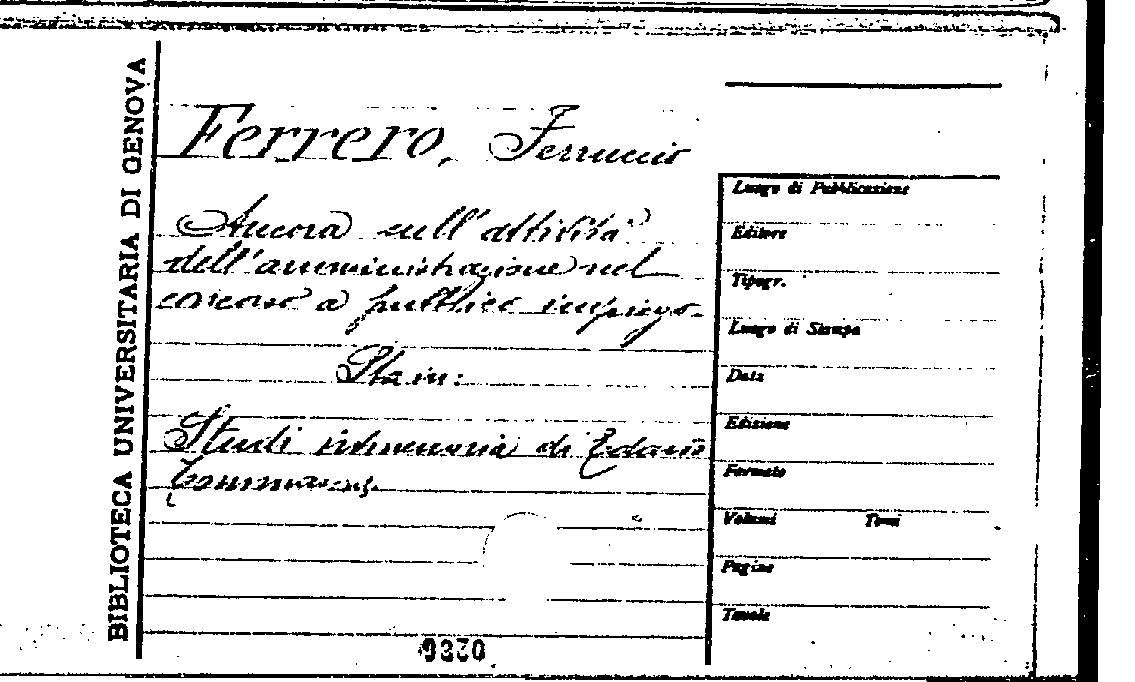 BIBLIOTECA UNIVERSITARIA DI GENOVA
Ferrero, Ferruccio
Ancora sull'attività
dell'amministrazione nel
concorso a pubblico impiego.
Sta in:
Studi in memoria di
Luogo di Pubblicazione
Editore
Tipogr.
Luogo di Stampa
Data
Edizione
Formato
Volumi Tomi
Pagine
Tavole